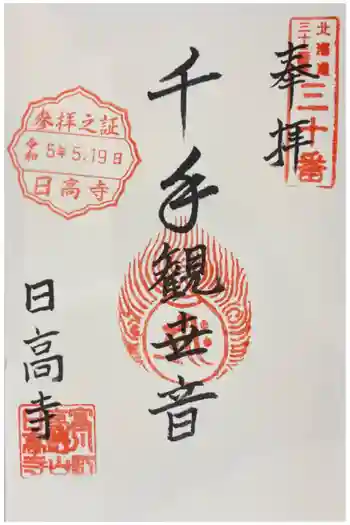 北海道
三十三
三十番
奉拝
千手観世音
参拝之証
令和 5年5.19日
日高寺
日高寺